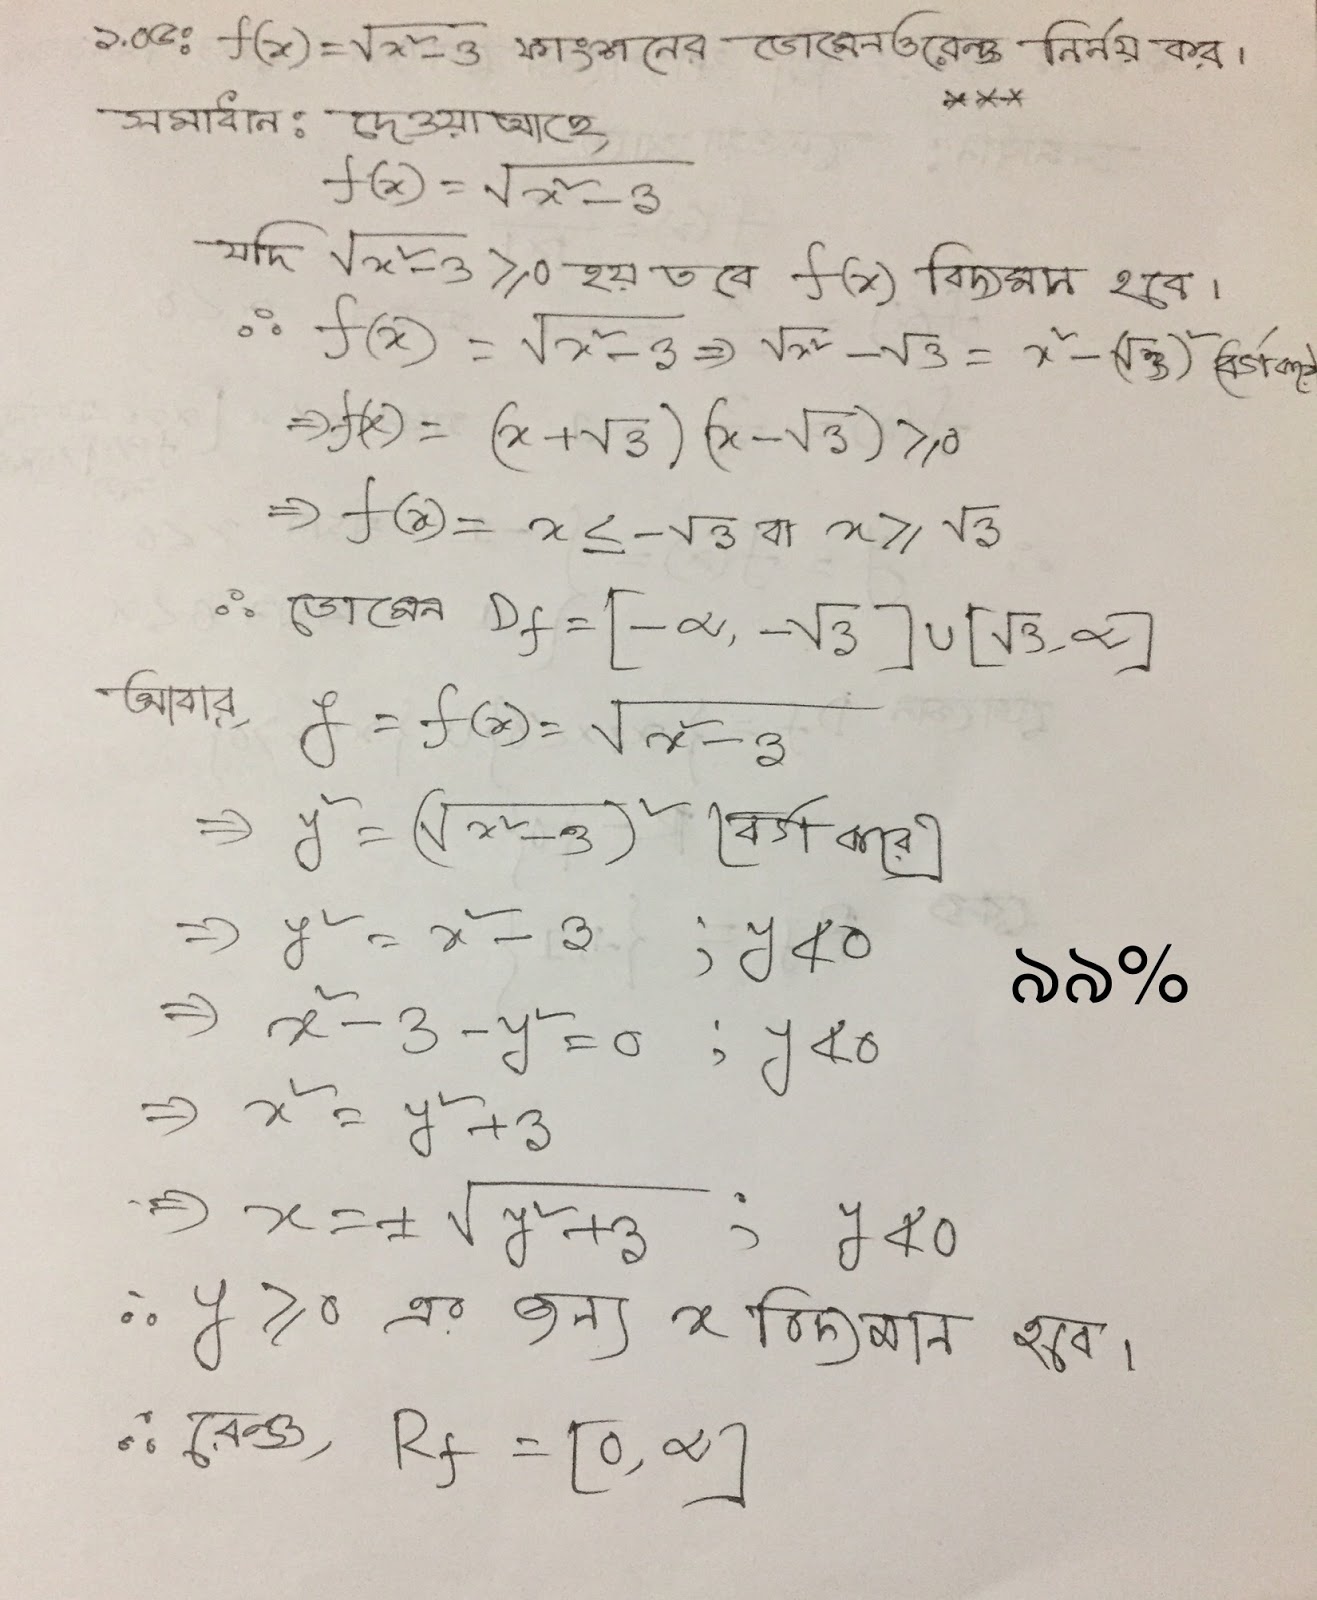 ১.০৫: f(x)=√x²-3 ফাংশনের ডোমেন ও রেঞ্জ নির্নয় কর।
***
সমাধান: দেওয়া আছে,
f(x) = √x²-3
যদি √x²-3 ≥0 হয় তবে f(x) বিদ্যমান হবে।
∴ f(x) = √x²-3 ⇒ √x² -√3 = x²-(√3)² [বর্গ করে]
⇒f(x) = (x+√3)(x-√3)≥0
⇒ f(x) = x≤-√3 বা x≥√3
∴ ডোমেন Df = [-∝, -√3]∪[√3, ∝]
আবার, y = f(x) = √x²-3
⇒ y² = (√x²-3)² [বর্গ করে]
⇒ y² = x²-3 ; y≮0
৯৯%
⇒ x²-3-y²=0 ; y≮0
⇒ x² = y²+3
⇒ x = ±√y²+3 ; y≮0
∴ y≥0 এর জন্য x বিদ্যমান হবে।
∴ রেঞ্জ, Rf = [0, ∝]